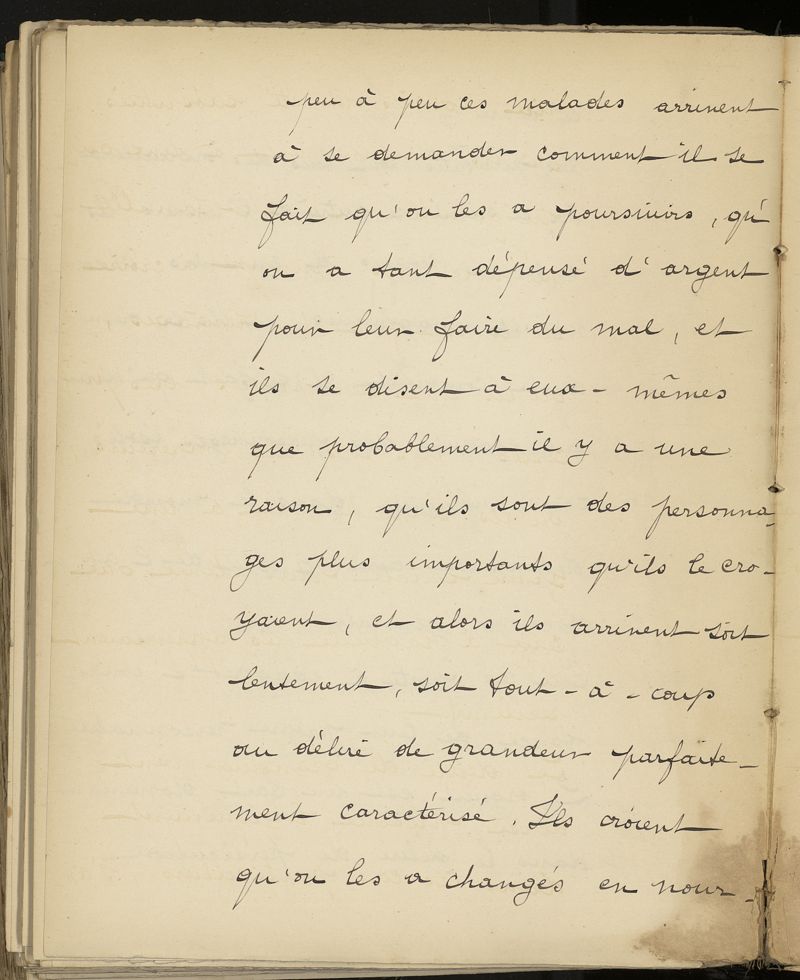 peu à peu ces malades arrivent
à se demander comment il se
fait qu'on les a poursuivis, qu'
on a tant dépensé d'argent
pour leur faire du mal, et
ils se disent à eux-mêmes
que probablement il y a une
raison, qu'ils sont des personna-
ges plus importants qu'ils le cro-
yaient, et alors ils arrivent soit
lentement, soit tout-à-coup
au délire de grandeur parfaite-
ment caractérisé. Ils croient
qu'on les a changés en nour-